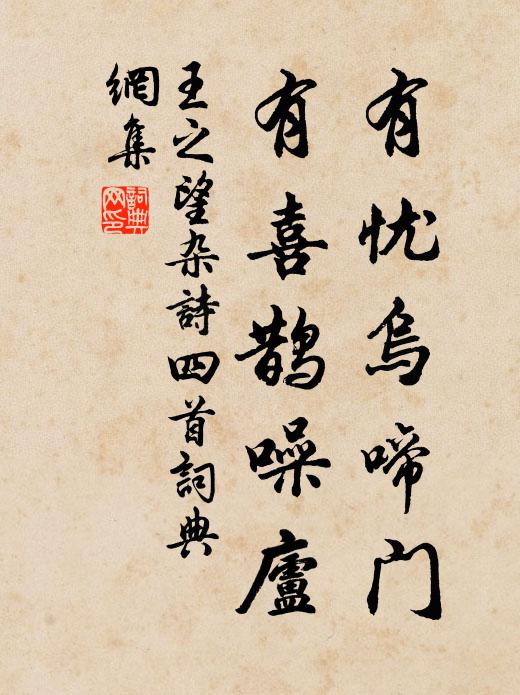 有忧乌啼门
有喜鹊噪廬
王之望杂詩四首詞典
網集
詞典网印